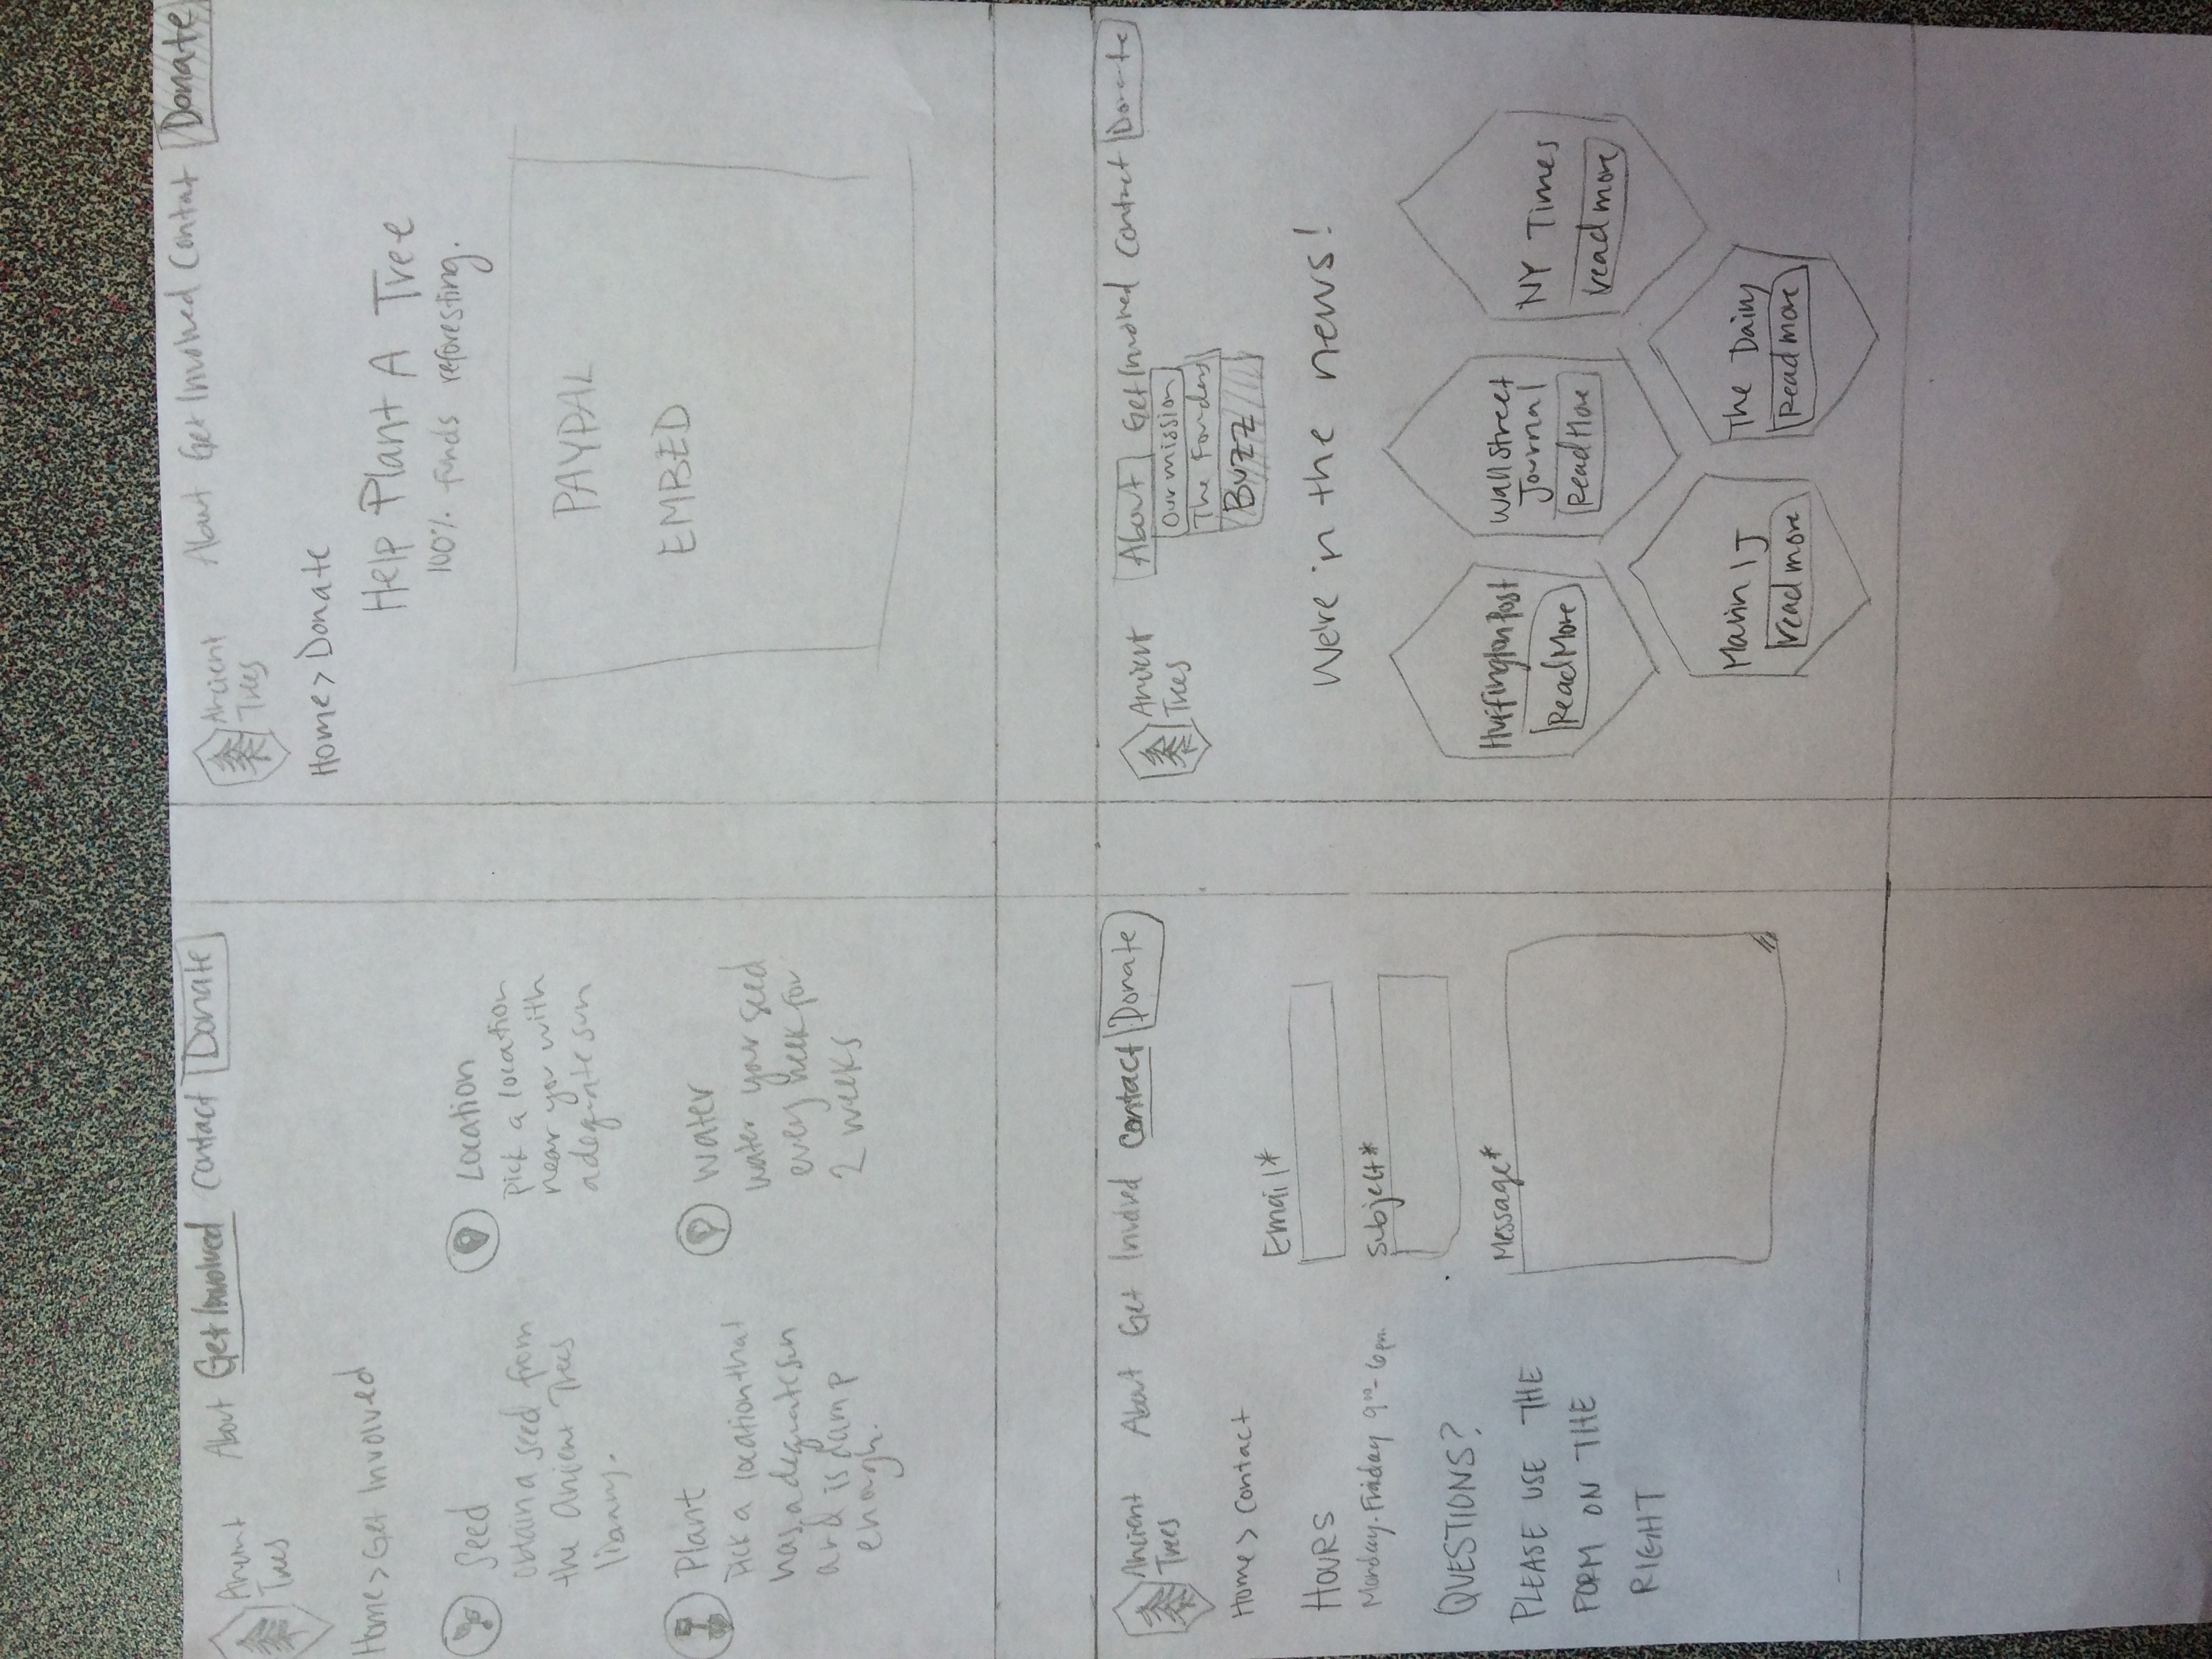 Ancient
Trees
About Get Involved Contact Donate
Home > Get Involved
Seed
obtain a seed from
the Ancient Trees
library.
Location
pick a location
near you with
adequate sun
Plant
Pick a location that
has adequate sun
and is damp
enough.
Water
water your seed
every week for
2 weeks
Ancient
Trees
About Get Involved Contact Donate
Home > Donate
Help Plant A Tree
100% funds reforesting.
PAYPAL
EMBED
Ancient
Trees
About Get Involved Contact Donate
Home > Contact
HOURS
Monday-Friday 9⁰⁰-6pm
QUESTIONS?
PLEASE USE THE
FORM ON THE
RIGHT
Email*
Subject*
Message*
Ancient
Trees
About Get Involved Contact Donate
Our mission
The Founders
Buzz
We're in the news!
Huffington Post
Read More
Wall Street
Journal
Read More
NY Times
read more
Marin IJ
read more
The Dainy
Read more